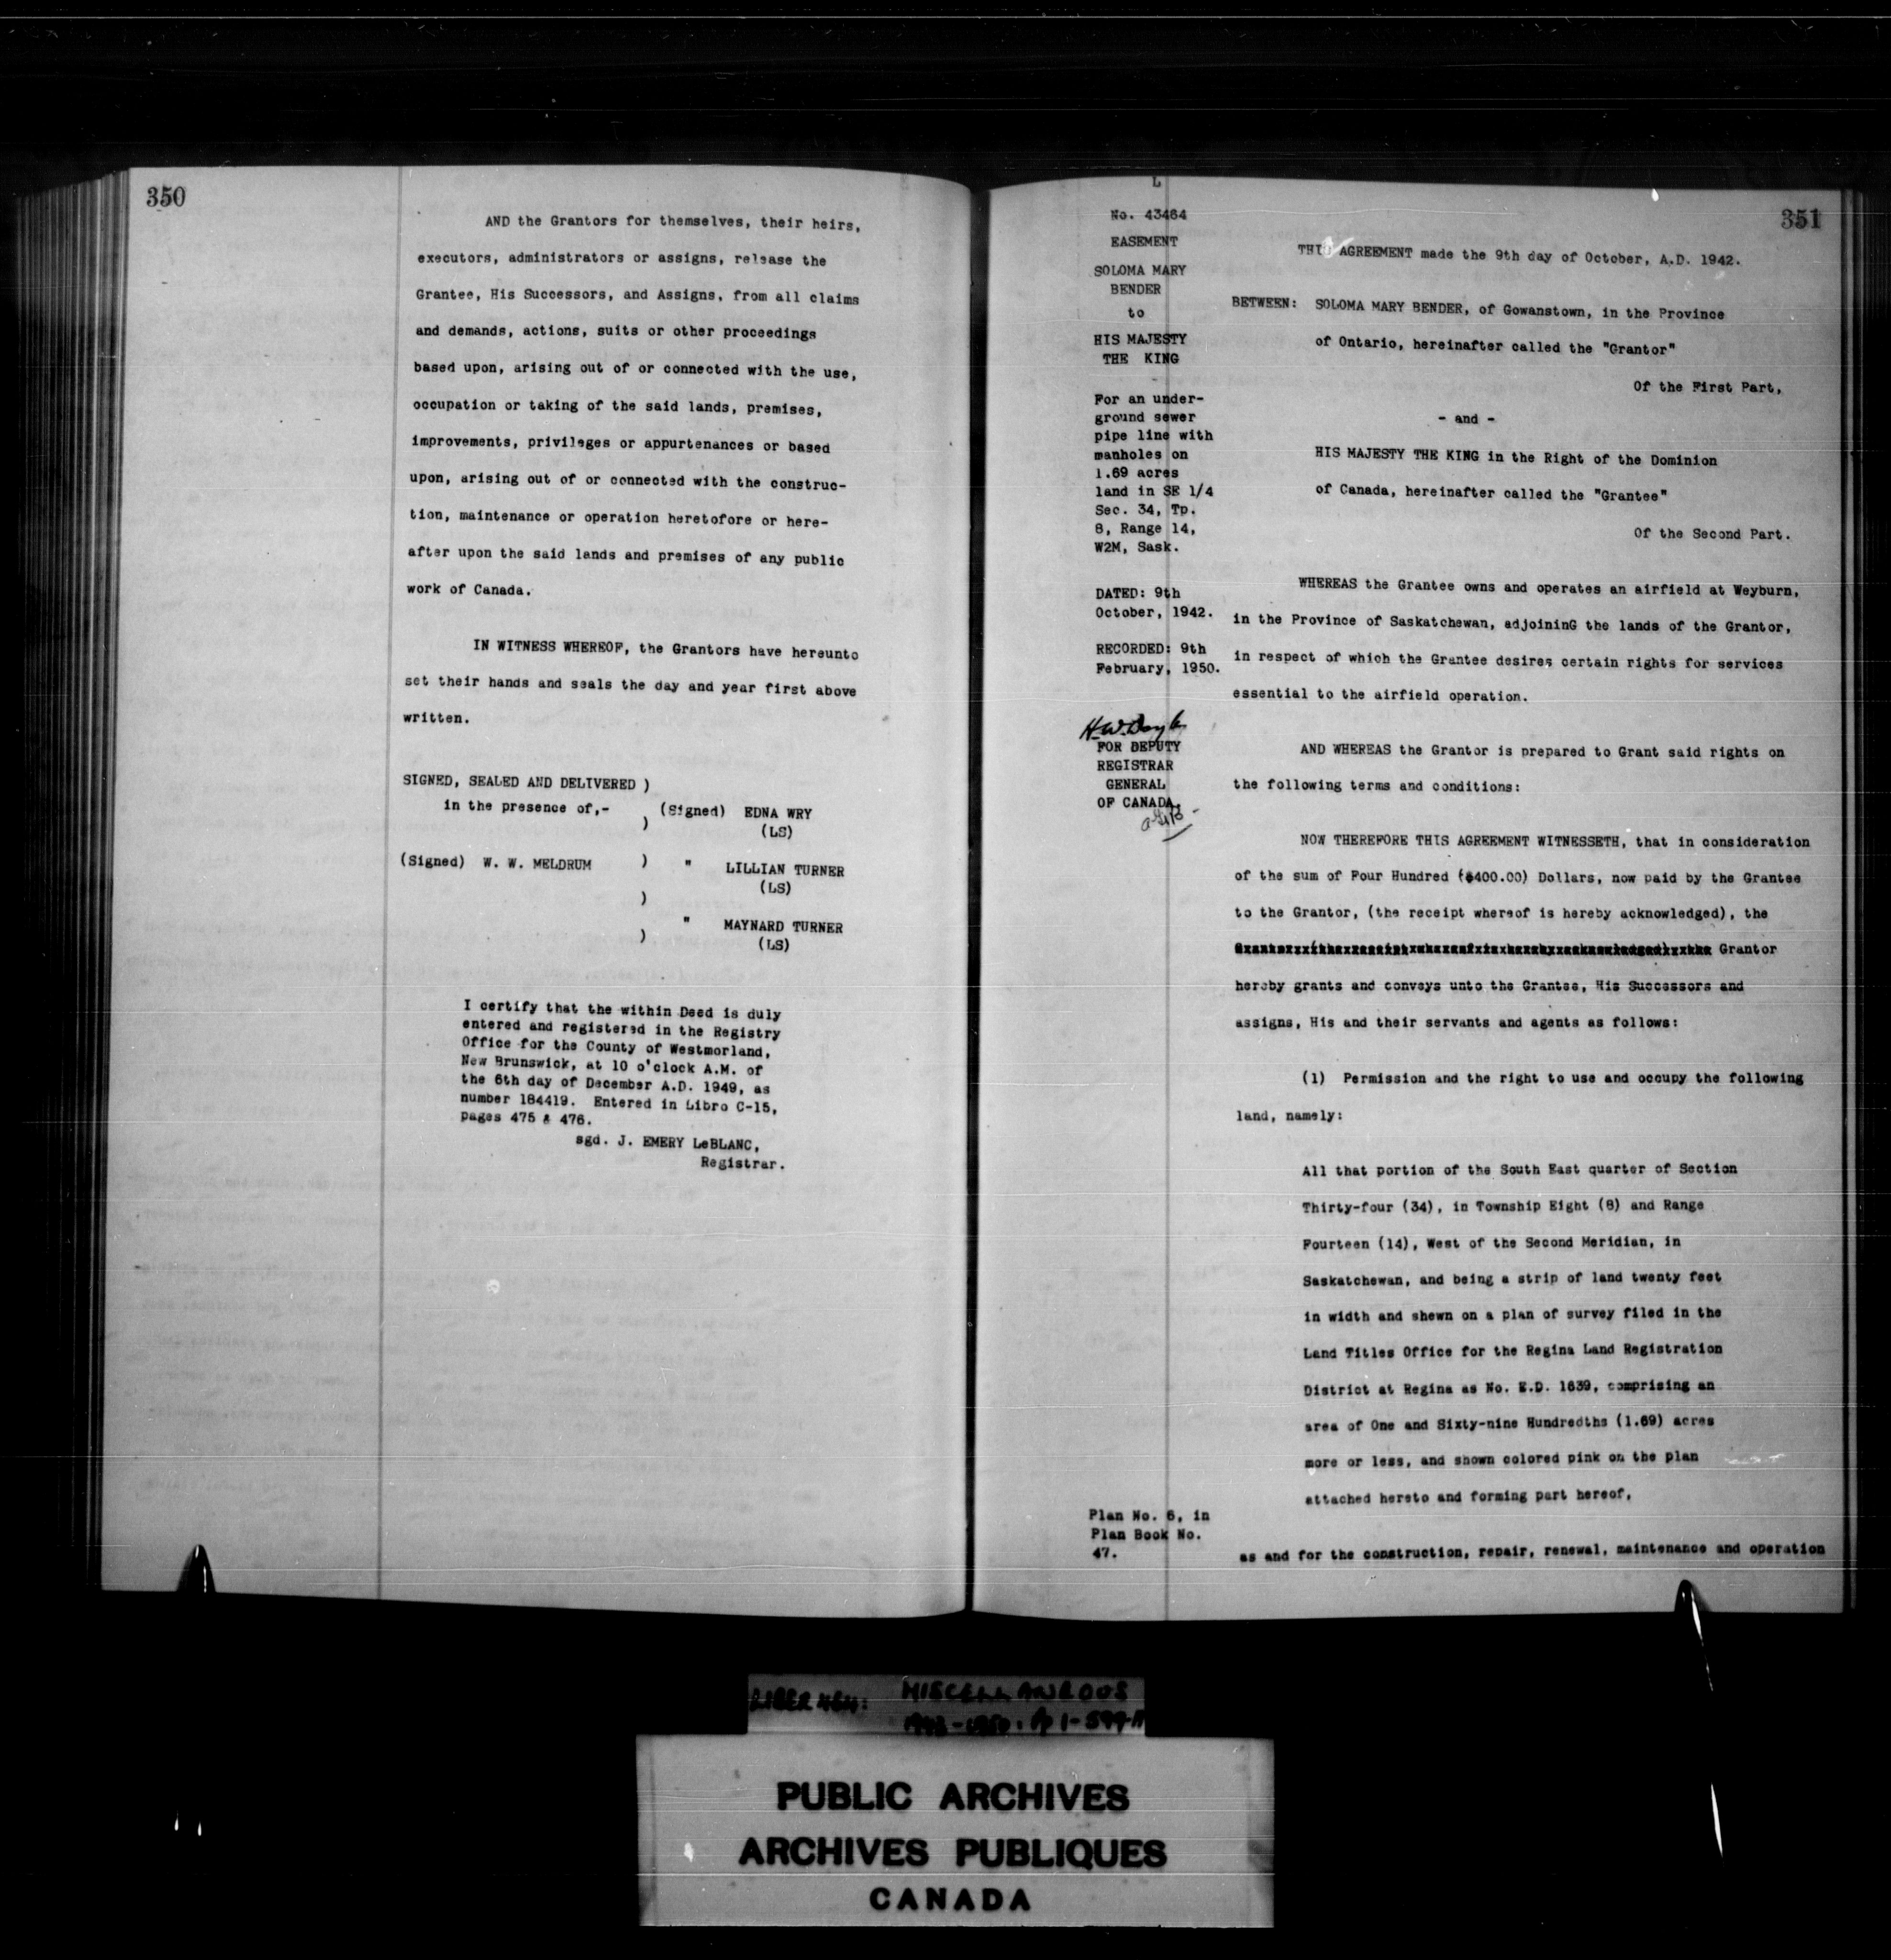 350
AND the Grantors for themselves, their heirs,
executors, administrators or assigns, release the
Grantee, His Successors, and Assigns, from all claims
and demands, actions, suits or other proceedings
based upon, arising out of or connected with the use,
occupation or taking of the said lands, premises,
improvements, privileges or appurtenances or based
upon, arising out of or connected with the construc-
tion, maintenance or operation heretofore or here-
after upon the said lands and premises of any public
work of Canada.
IN WITNESS WHEREOF, the Grantors have hereunto
set their hands and seals the day and year first above
written.
SIGNED, SEALED AND DELIVERED )
in the presence of,- (Signed) EDNA WRY
) (LS)
(Signed) W. W. MELDRUM ) " LILLIAN TURNER
(LS)
)
" MAYNARD TURNER
) (LS)
I certify that the within Deed is duly
entered and registered in the Registry
Office for the County of Westmorland,
New Brunswick, at 10 o'clock A.M. of
the 6th day of December A.D. 1949, as
number 184419. Entered in Libro C-15,
pages 475 & 476.
sgd. J. EMERY LeBLANC,
Registrar.
L
No. 43464
EASEMENT
SOLOMA MARY
BENDER
to
HIS MAJESTY
THE KING
For an under-
ground sewer
pipe line with
manholes on
1.69 acres
land in SE 1/4
Sec. 34, Tp.
8, Range 14,
W2M, Sask.
DATED: 9th
October, 1942.
RECORDED: 9th
February, 1950.
H.W. Doyle
FOR DEPUTY
REGISTRAR
GENERAL
OF CANADA.
Plan No. 6, in
Plan Book No.
47.
351
THIS AGREEMENT made the 9th day of October, A.D. 1942.
BETWEEN: SOLOMA MARY BENDER, of Gowanstown, in the Province
of Ontario, hereinafter called the "Grantor"
Of the First Part,
- and -
HIS MAJESTY THE KING in the Right of the Dominion
of Canada, hereinafter called the "Grantee"
Of the Second Part.
WHEREAS the Grantee owns and operates an airfield at Weyburn,
in the Province of Saskatchewan, adjoininG the lands of the Grantor,
in respect of which the Grantee desires certain rights for services
essential to the airfield operation.
AND WHEREAS the Grantor is prepared to Grant said rights on
the following terms and conditions:
NOW THEREFORE THIS AGREEMENT WITNESSETH, that in consideration
of the sum of Four Hundred ($400.00) Dollars, now paid by the Grantee
to the Grantor, (the receipt whereof is hereby acknowledged), the
Grantor
hereby grants and conveys unto the Grantee, His Successors and
assigns, His and their servants and agents as follows:
(1) Permission and the right to use and occupy the following
land, namely:
All that portion of the South East quarter of Section
Thirty-four (34), in Township Eight (8) and Range
Fourteen (14), West of the Second Meridian, in
Saskatchewan, and being a strip of land twenty feet
in width and shewn on a plan of survey filed in the
Land Titles Office for the Regina Land Registration
District at Regina as No. E.D. 1639, comprising an
area of One and Sixty-nine Hundredths (1.69) acres
more or less, and shown colored pink on the plan
attached hereto and forming part hereof,
as and for the construction, repair, renewal, maintenance and operation
LIBER 464: MISCELLANEOUS
PUBLIC ARCHIVES
ARCHIVES PUBLIQUES
CANADA